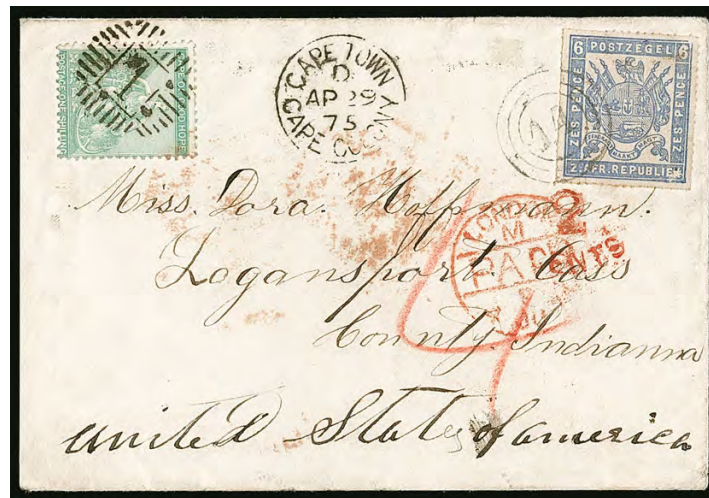 CAPE TOWN
D
AP 29
75
CAPE COLONY
6 POSTZEGEL 6
ZES PENCE
ZES PENCE
Z. AFR. REPUBLIEK
1
2
CENTS
LONDON
M
PAID
4
Miss. Dora. Hoffmann.
Logansport. Cass
County. Indianna
United States of america